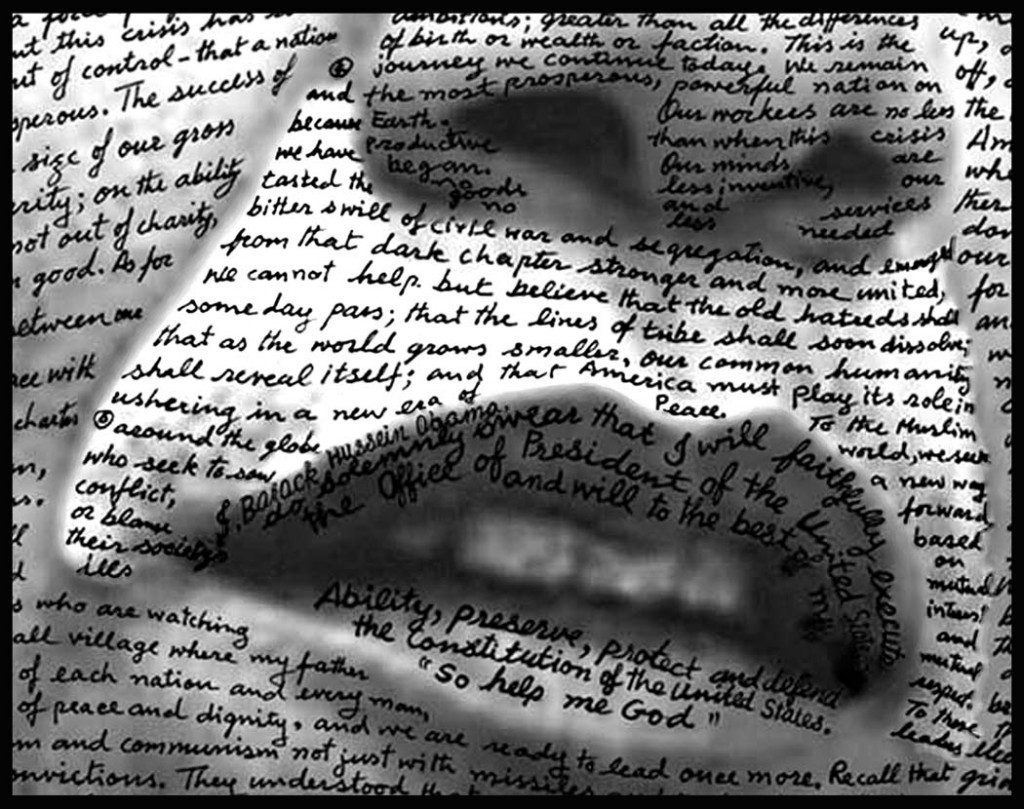 ut this crisis has
out of control - that a nation
sperous. The success of
size of our gross
erity; on the ability
not out of charity,
good. As for
between our
ace with
charter
ambitions; greater than all the differences
of birth or wealth or faction. This is the
journey we continue today. We remain
the most prosperous, powerful nation on
Earth. Our workers are no less
productive than when this crisis
began. Our minds are
less inventive, our
goods and services
no less needed
and
because
we have
tasted the
bitter swill of civil war and segregation, and emerged
from that dark chapter stronger and more united,
we cannot help but believe that the old hatreds shall
someday pass; that the lines of tribe shall soon dissolve;
that as the world grows smaller, our common humanity
shall reveal itself; and that America must play its role in
ushering in a new era of Peace.
To the Muslim
world, we seek
a new way
forward
based
on
mutual
interest
and
mutual
respect.
To those
leaders
around the globe
who seek to sow
conflict,
or blame
their society's
ills
I, Barack Hussein Obama
do solemnly swear that I will faithfully execute
the Office of President of the United States
and will to the best of my
Ability, preserve, protect and defend
the Constitution of the United States.
"So help me God"
s who are watching
all village where my father
of each nation and every man,
of peace and dignity, and we are ready to lead once more. Recall that
m and communism not just with missiles
nvictions. They understood that
up,
off,
the
Am
whe
ther
don
our
for
an